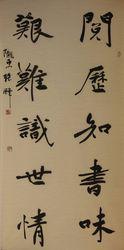 閱歷知書味
艱難識世情
隴東